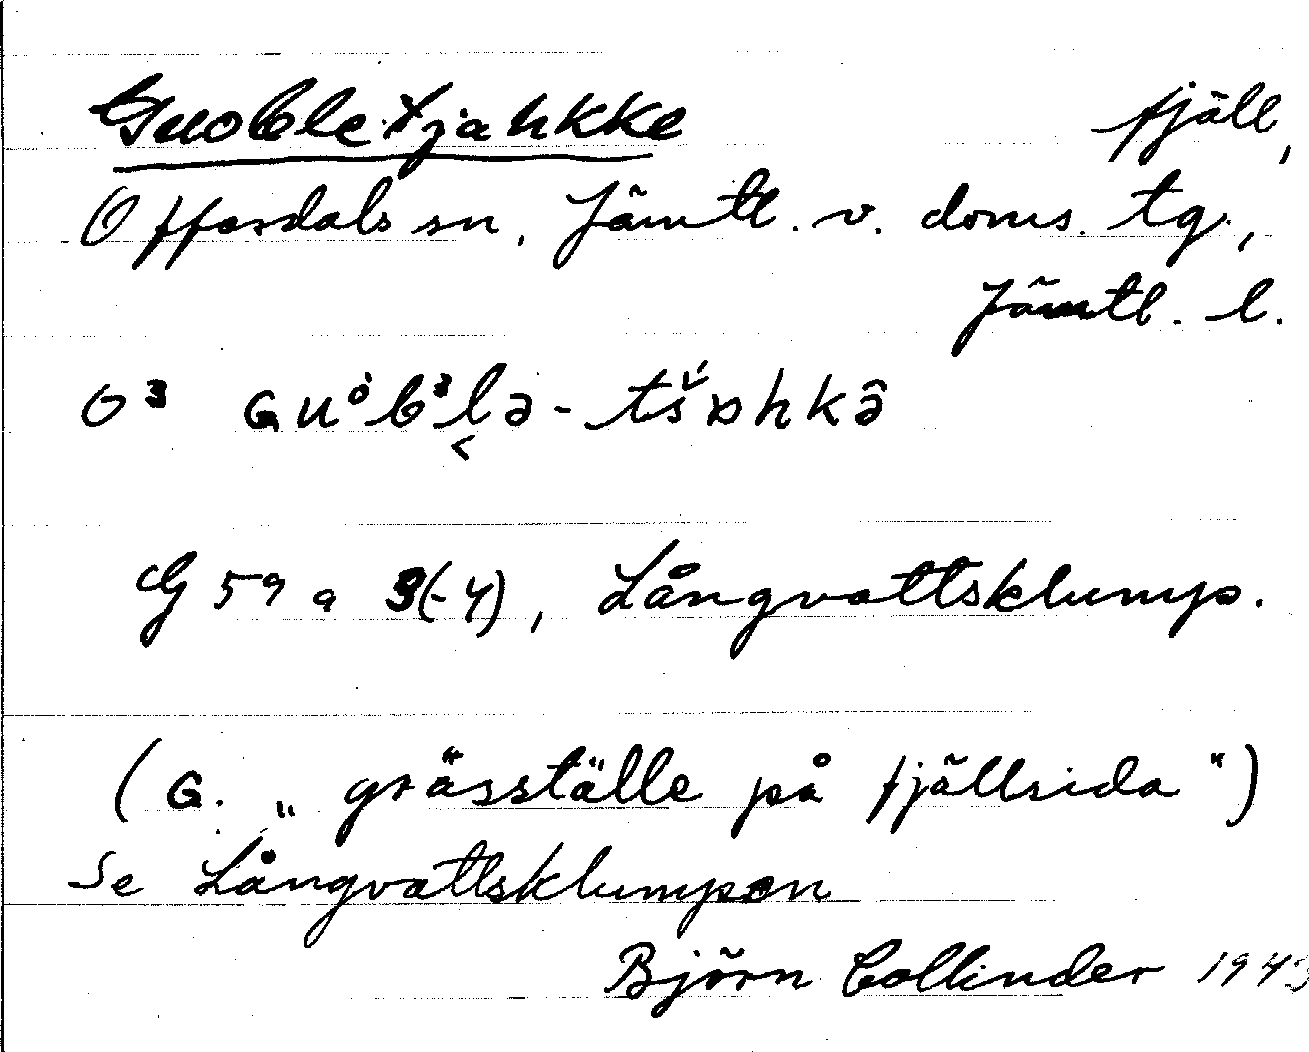 Guobletjahkke fjäll,
Offerdals sn. Jämtl. v. doms. tg.,
Jämtl. l.
O³ Guo̊b³lə-tšɒhkə̂
G 59 a 3(-4), Långvattsklump.
(G. „gräsställe på fjällsida")
Se Långvattsklumpen
Björn Collinder 1943